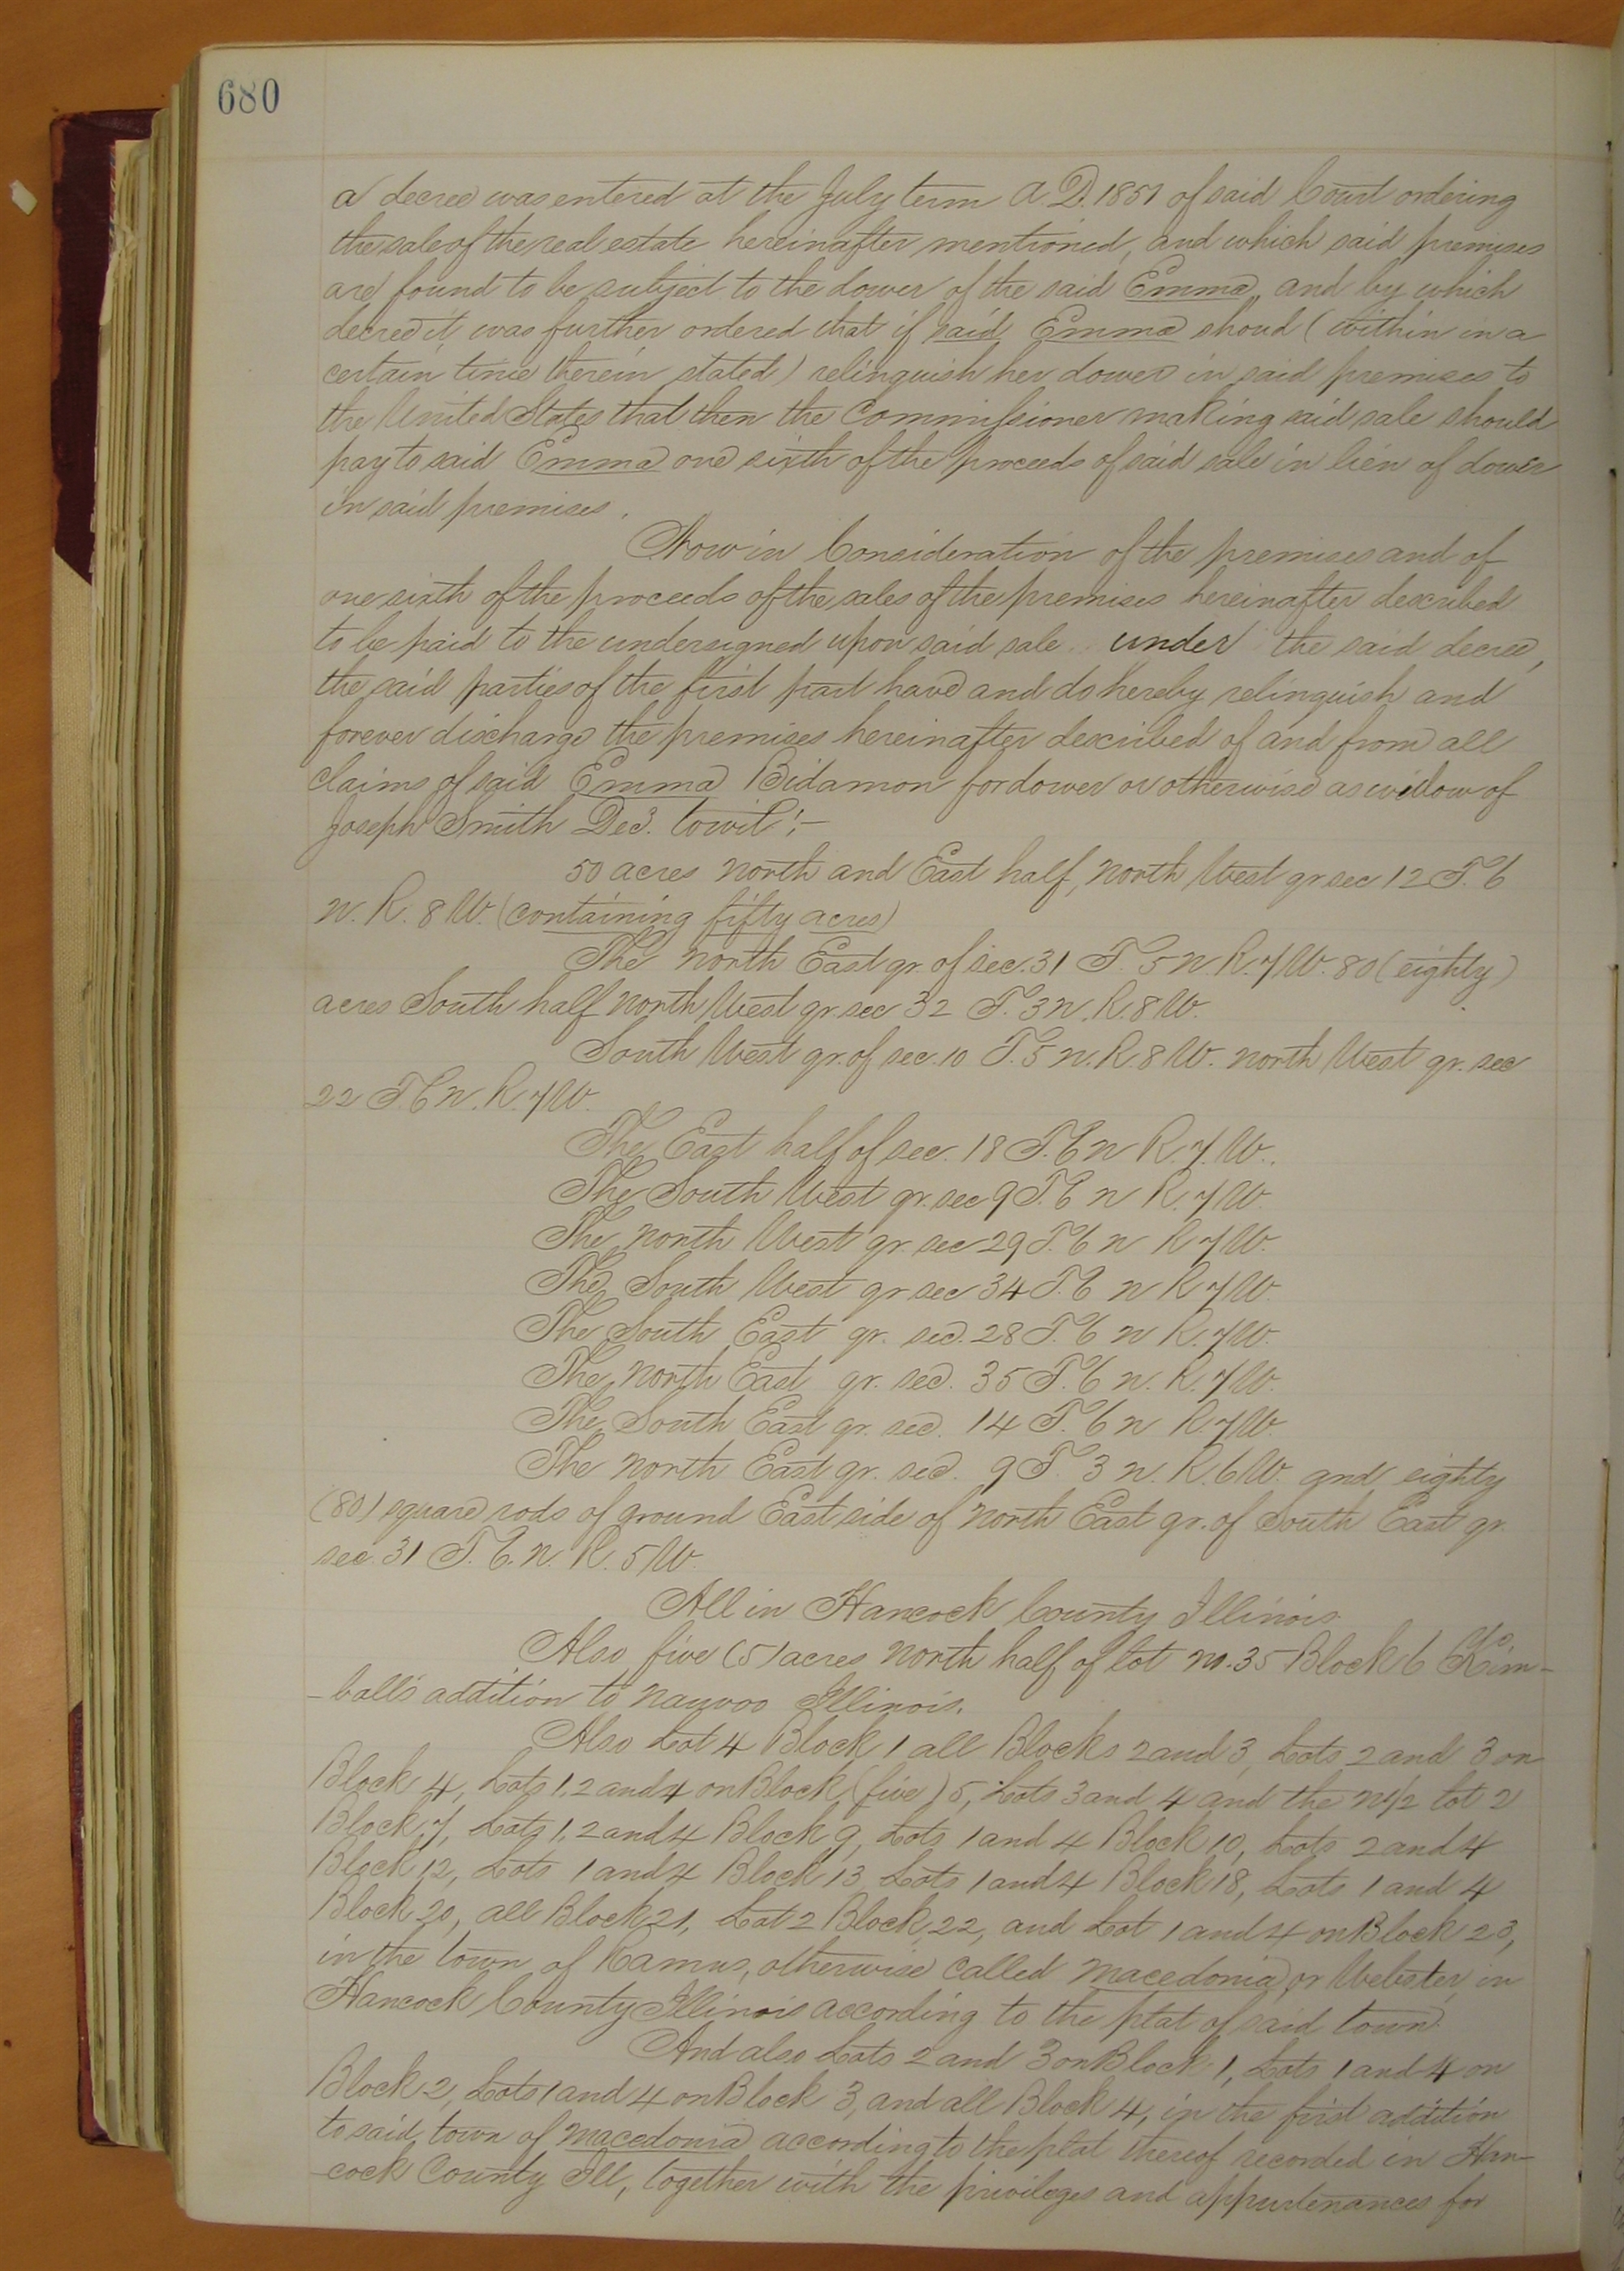 680
a decree was entered at the July term A.D. 1851 of said Court ordering
the sale of the real estate hereinafter mentioned, and which said premises
are found to be subject to the dower of the said Emma, and by which
decree it was further ordered that if said Emma shoud (within in a
certain time therein stated) relinquish her dower in said premises to
the United States that then the Commissioner making said sale should
pay to said Emma one sixth of the proceeds of said sale in lieu of dower
in said premises.
Now in Consideration of the premises and of
one sixth of the proceeds of the sales of the premises hereinafter described
to be paid to the undersigned upon said sale under the said decree,
the said parties of the first part have and do hereby relinquish and
forever discharge the premises hereinafter described of and from all
claims of said Emma Bidamon for dower or otherwise as widow of
Joseph Smith Decd. towit:-
50 acres north and East half, north West qr sec 12 T. 6
n. R. 8 W. (containing fifty acres)
The north East qr. of sec. 31 T. 5 n. R. 7 W. 80 (eighty)
acres South half north West qr. sec 32 T. 3 n. R. 8 W.
South West qr. of sec. 10 T. 5 n. R. 8 W. north West qr. sec
22 T. 6 n. R. 7 W.
The East half of sec. 18 T. 6 n R. 7. W.
The South West qr. sec 9 T. 6 n R. 7 W.
The north West qr. sec 29 T. 6 n R 7 W.
The South West qr sec 34 T. 6 n R 7 W.
The South East qr. sec. 28 T. 6 n R. 7 W.
The north East qr. sec. 35 T. 6 n. R. 7 W.
The South East qr. sec. 14 T. 6 n R. 7 W.
The north East qr. sec. 9 T. 3 n. R. 6 W. and eighty
(80) square rods of ground East side of north East qr. of South East qr.
sec. 31 T. 6. n. R. 5 W.
All in Hancock County Illinois.
Also five (5) acres north half of lot no. 35 Block 6 Kim-
-balls addition to nauvoo Illinois.
Also Lot 4 Block 1 all Blocks 2 and 3, Lots 2 and 3 on
Block 4, Lots 1, 2 and 4 on Block (five) 5, Lots 3 and 4 and the n 1/2 lot 2
Block 7, Lots 1, 2 and 4 Block 9, Lots 1 and 4 Block 10, Lots 2 and 4
Block 12, Lots 1 and 4 Block 13, Lots 1 and 4 Block 18, Lots 1 and 4
Block 20, all Block 21, Lot 2 Block 22, and Lot 1 and 4 on Block 23,
in the town of Ramus, otherwise called Macedonia or Webster, in
Hancock County Illinois according to the plat of said town
And also Lots 2 and 3 on Block 1, Lots 1 and 4 on
Block 2, Lots 1 and 4 on Block 3, and all Block 4, in the first addition
to said town of Macedonia according to the plat thereof recorded in Han-
-cock County Ill, together with the privileges and appurtenances for